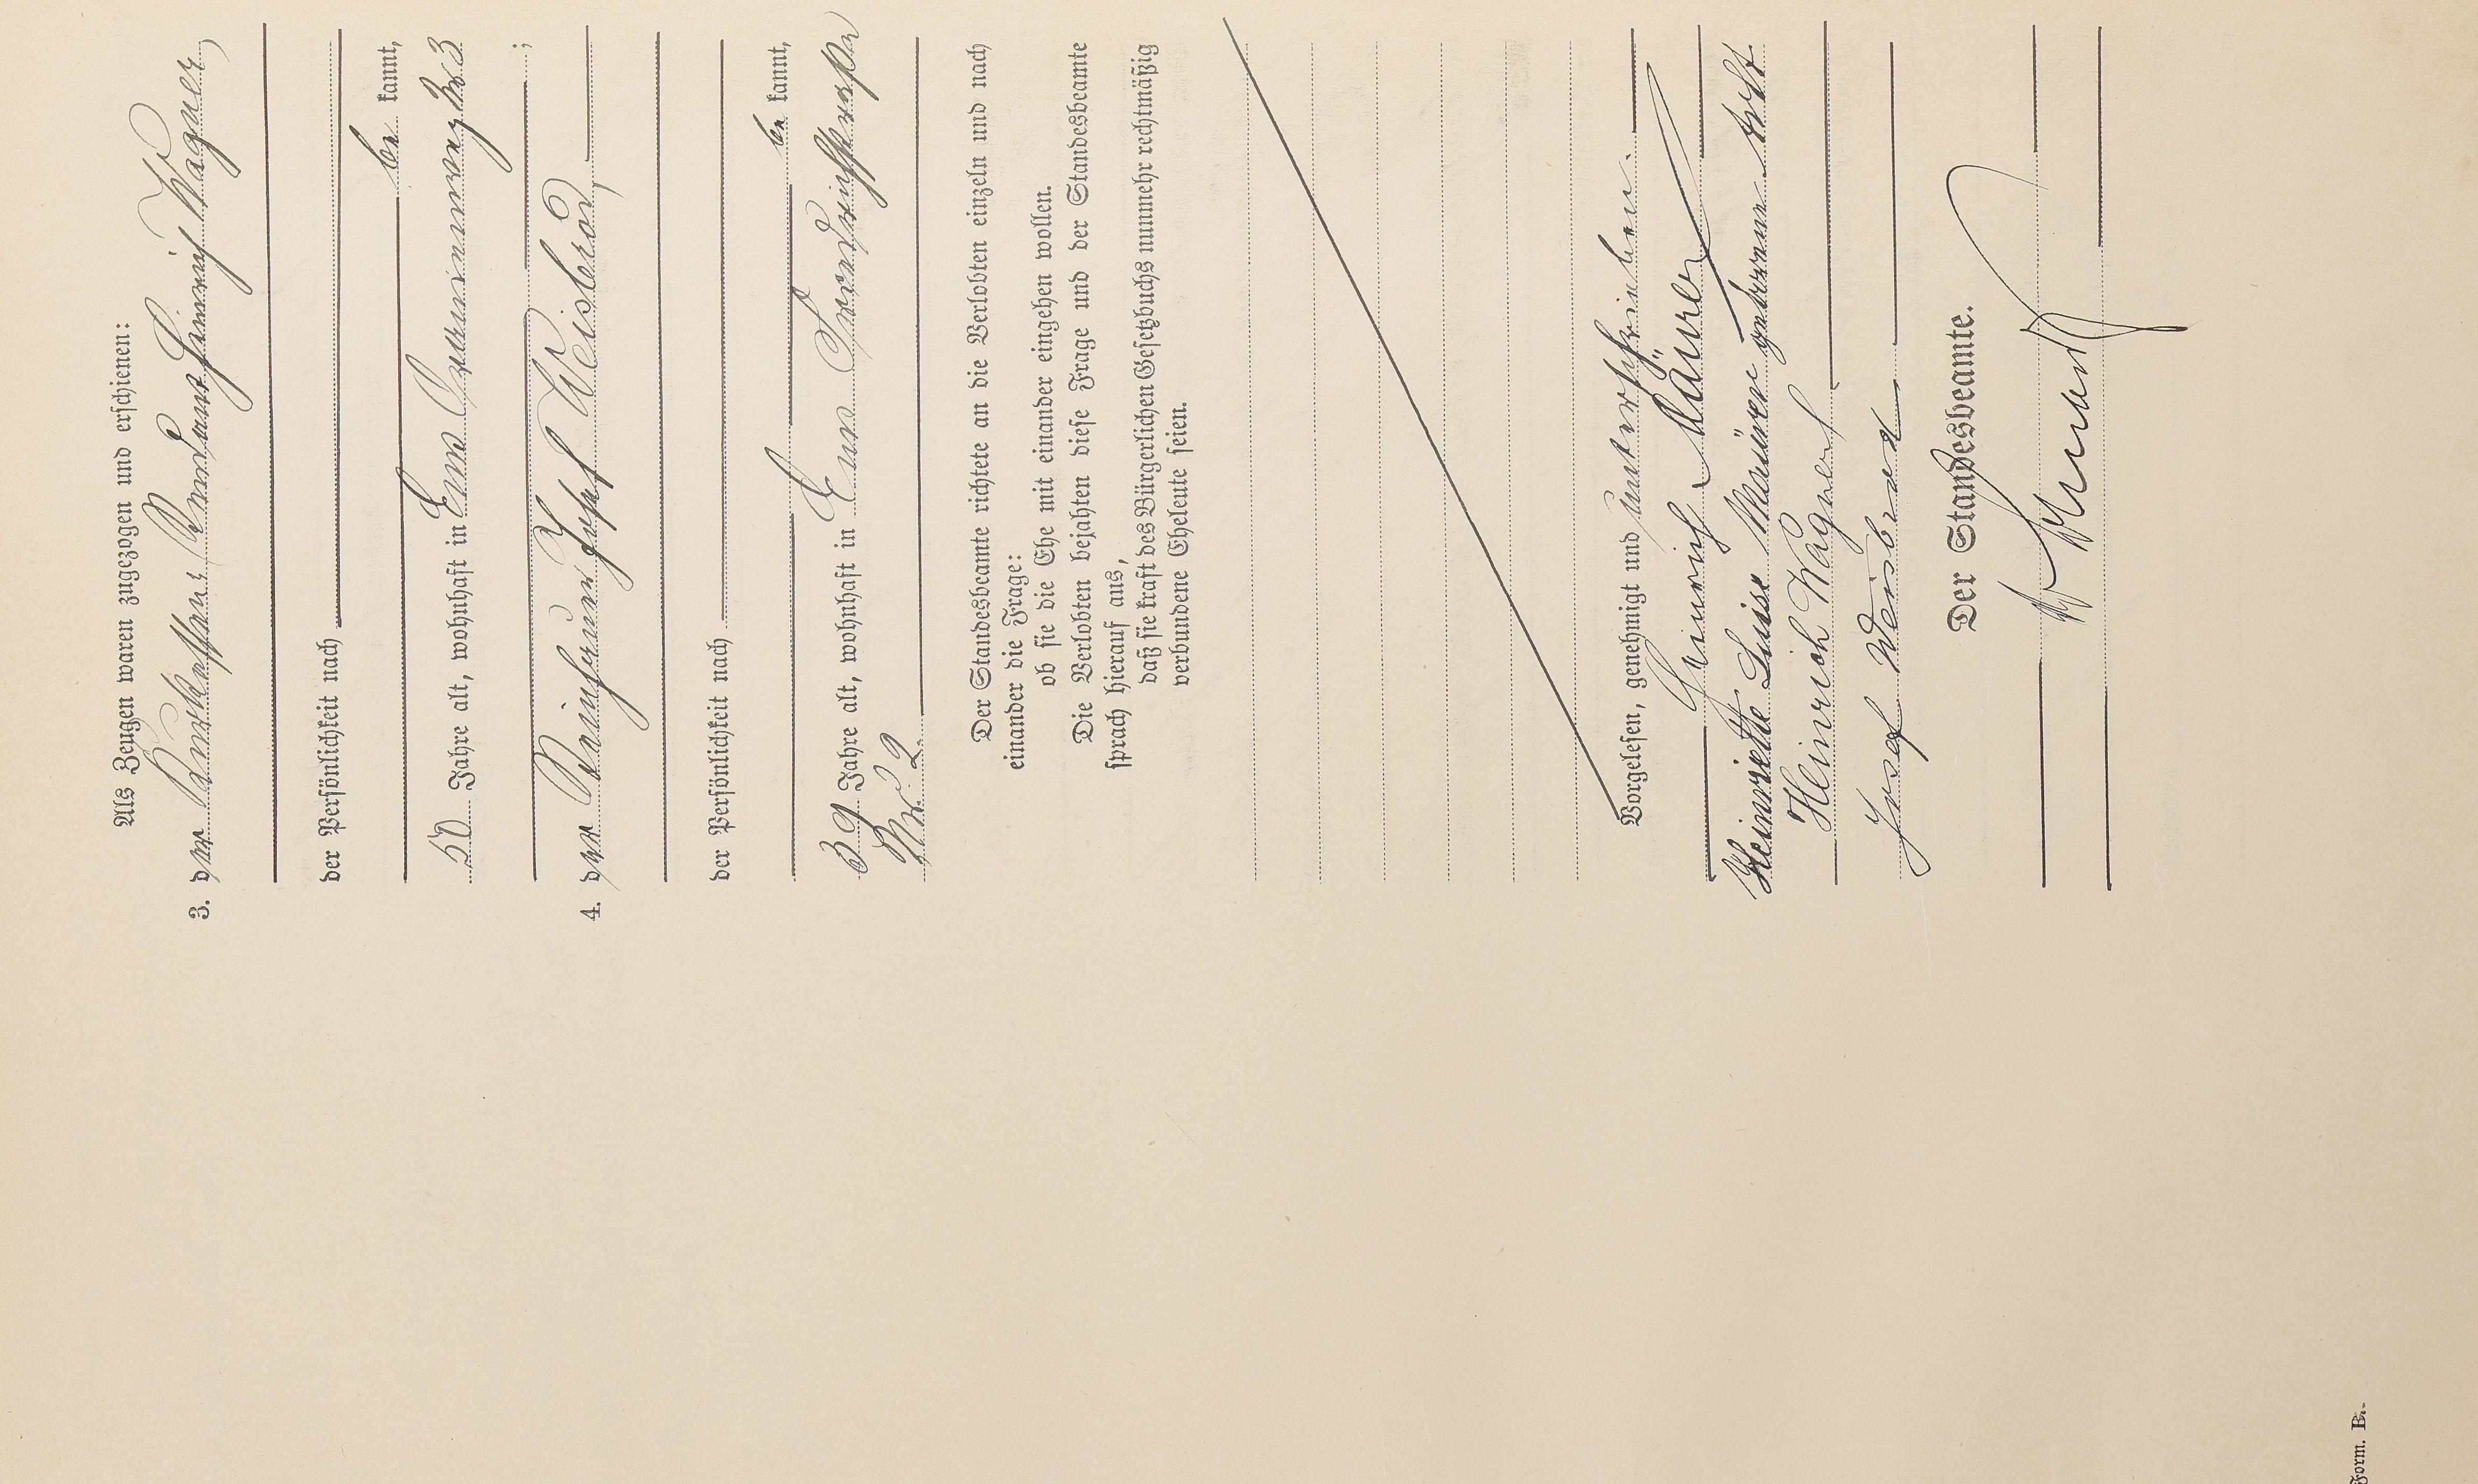 Als Zeugen waren zugezogen und erschienen:
3. der Heinrich Wagner,
der Persönlichkeit nach
be kannt,
50 Jahre alt, wohnhaft in Ems 33
;
4. der Josef Weisbrod,
der Persönlichkeit nach
be kannt,
39 Jahre alt, wohnhaft in Ems
No 2.
Der Standesbeamte richtete an die Verlobten einzeln und nach
einander die Frage:
ob sie die Ehe mit einander eingehen wollen.
Die Verlobten bejahten diese Frage und der Standesbeamte
sprach hierauf aus,
daß sie kraft des Bürgerlichen Gesetzbuchs nunmehr rechtmäßig
verbundene Eheleute seien.
Vorgelesen, genehmigt und unterschrieben.
Heinrich Mäurer
Heinriette Luise Mäurer geborene
Heinrich Wagner
Josef Weisbrod
Der Standesbeamte.
Form. B.